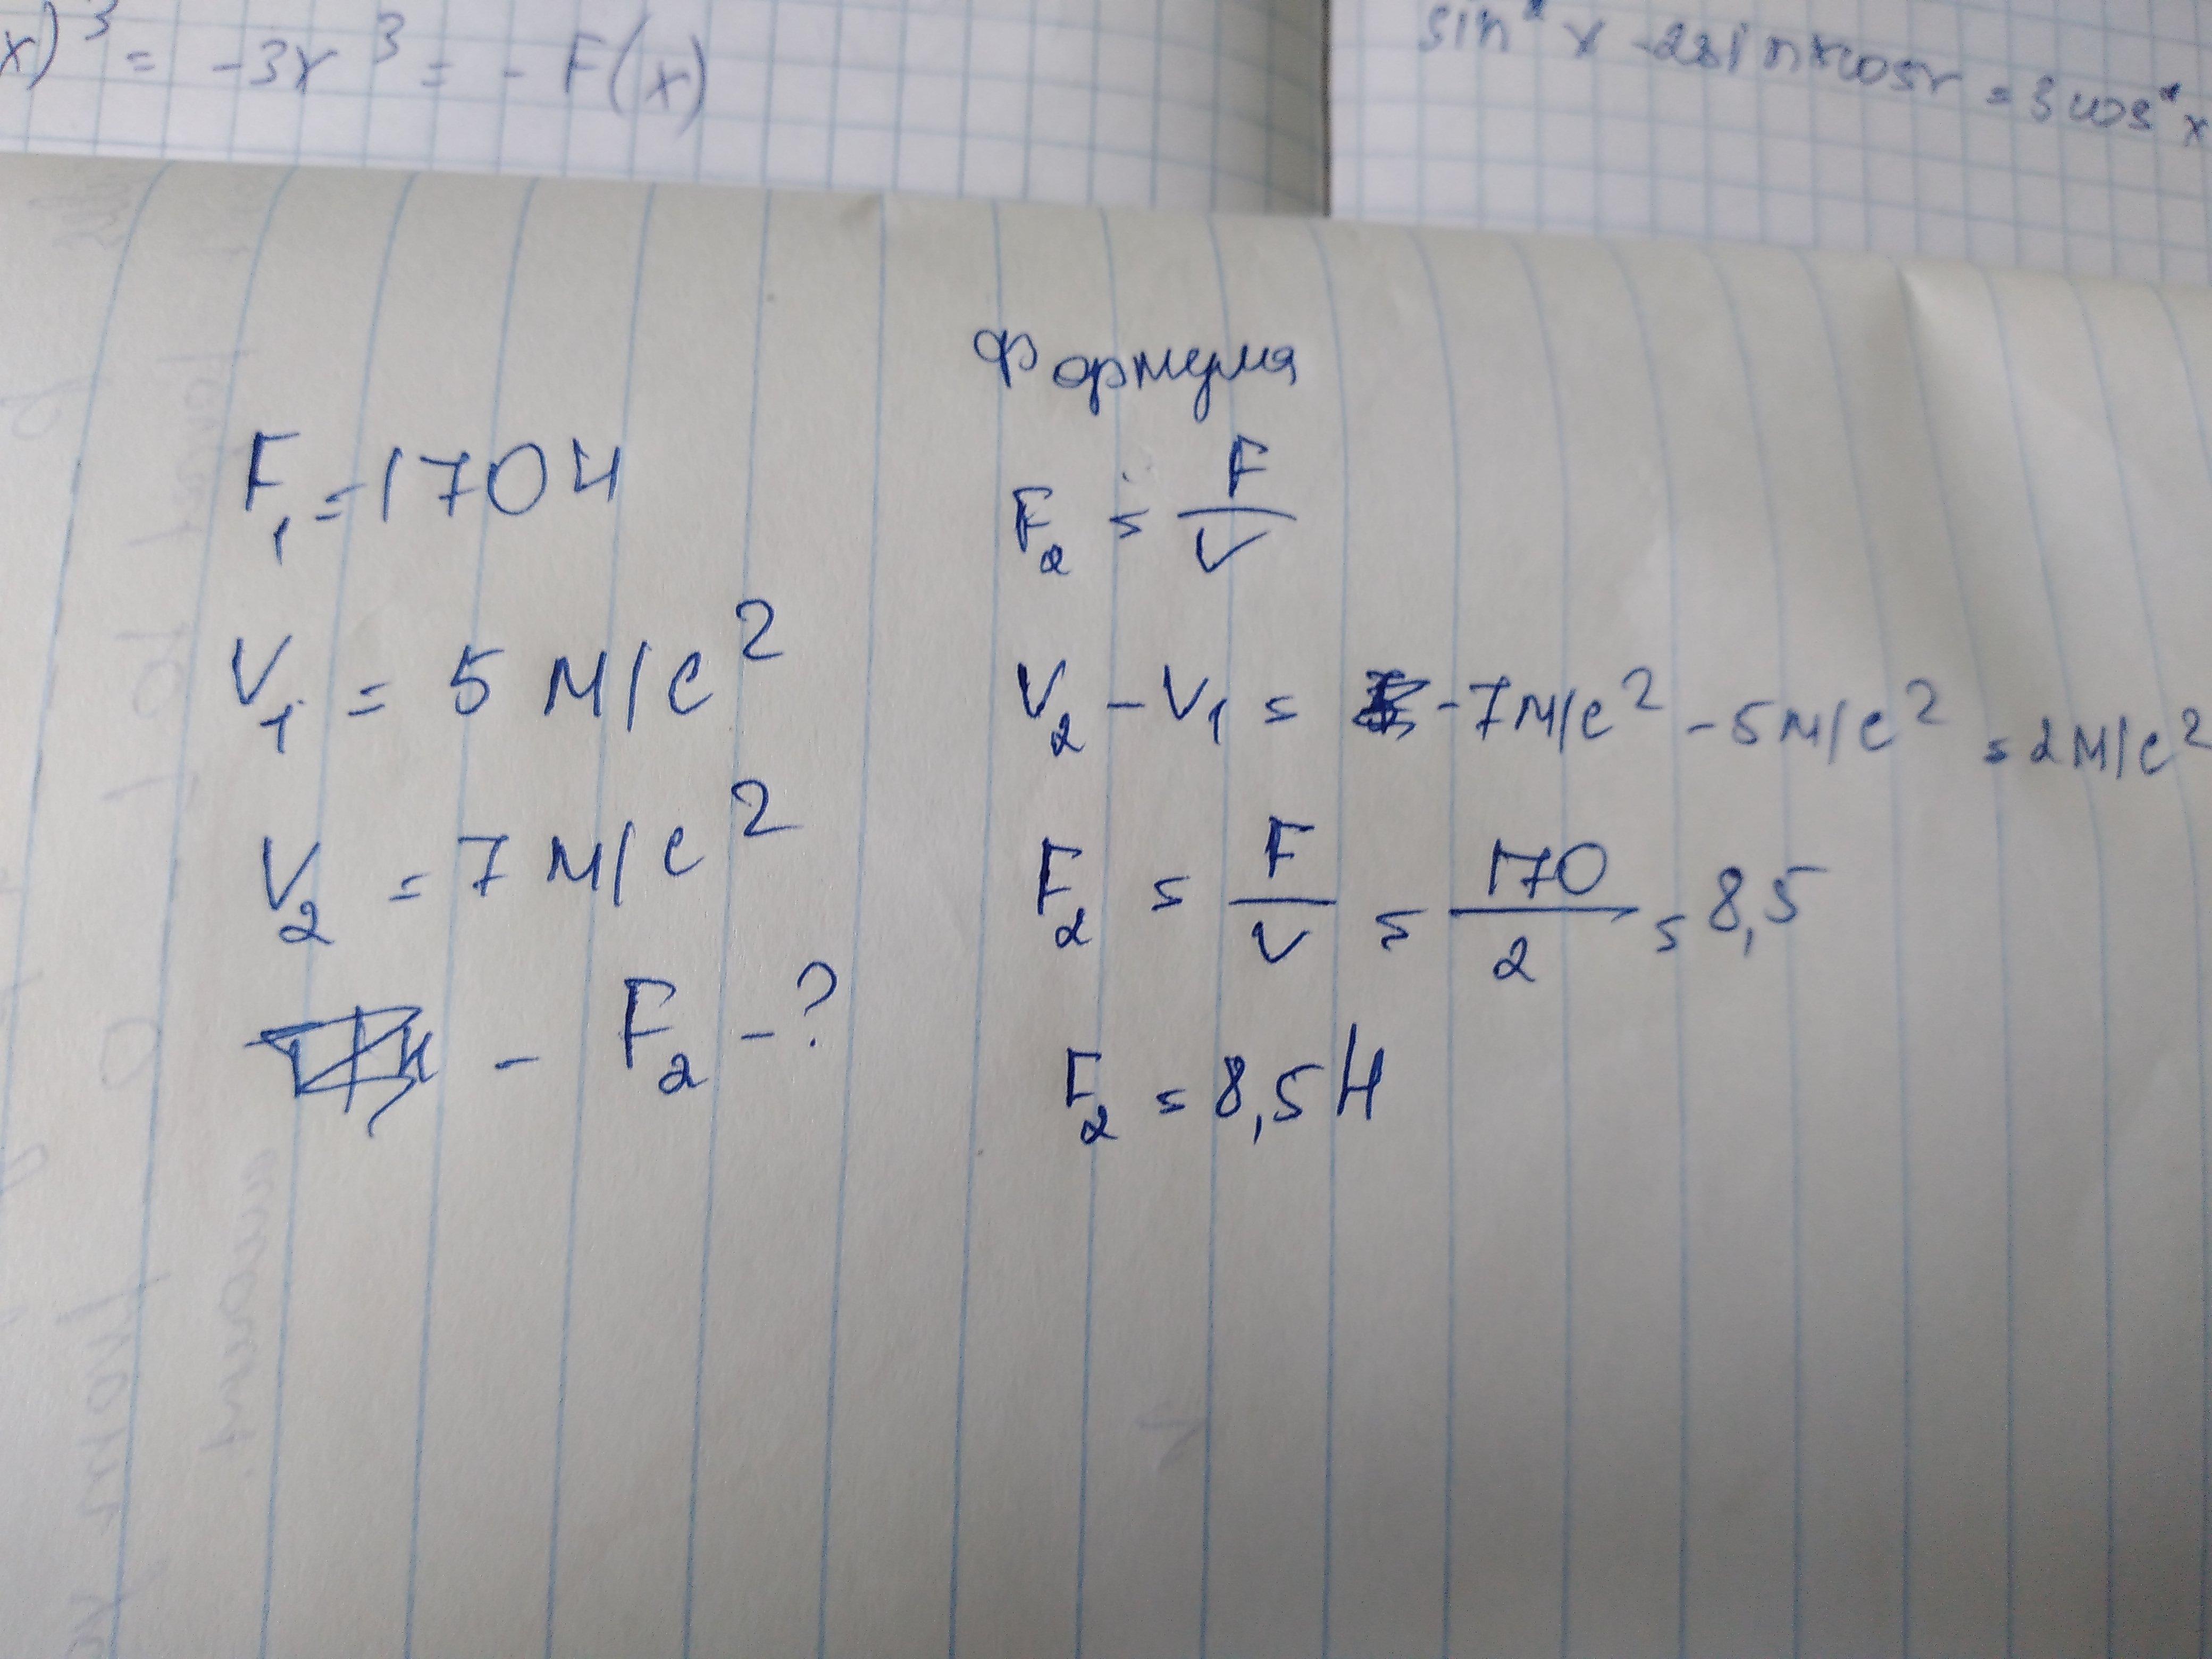 x)³ = -3x³ = - F(x)
sin²x - 2sinxcosx = 3cos²x
F₁ = 170 Н
V₁ = 5 м/с²
V₂ = 7 м/с²
- F₂ - ?
Формула
F₂ = F/V
V₂ - V₁ = - 7м/с² - 5м/с² = 2м/с²
F₂ = F/V = 170/2 = 8,5
F₂ = 8,5 Н